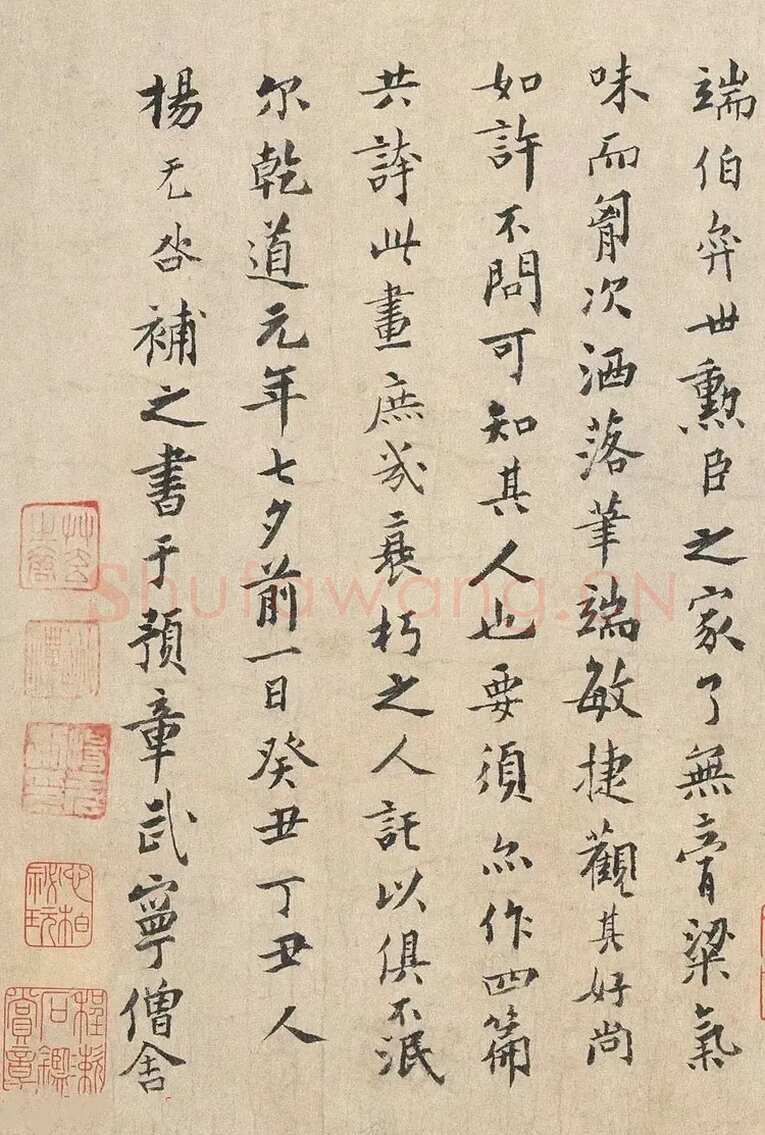 端伯奕世勲臣之家了無膏粱氣
味而胷次洒落筆端敏捷觀其好尚
如許不問可知其人也要須亦作四篇
共誇此畫庶幾衰朽之人託以俱不泯
尔乾道元年七夕前一日癸丑丁丑人
楊无咎補之書于預章武寧僧舍
Shufawang.CN